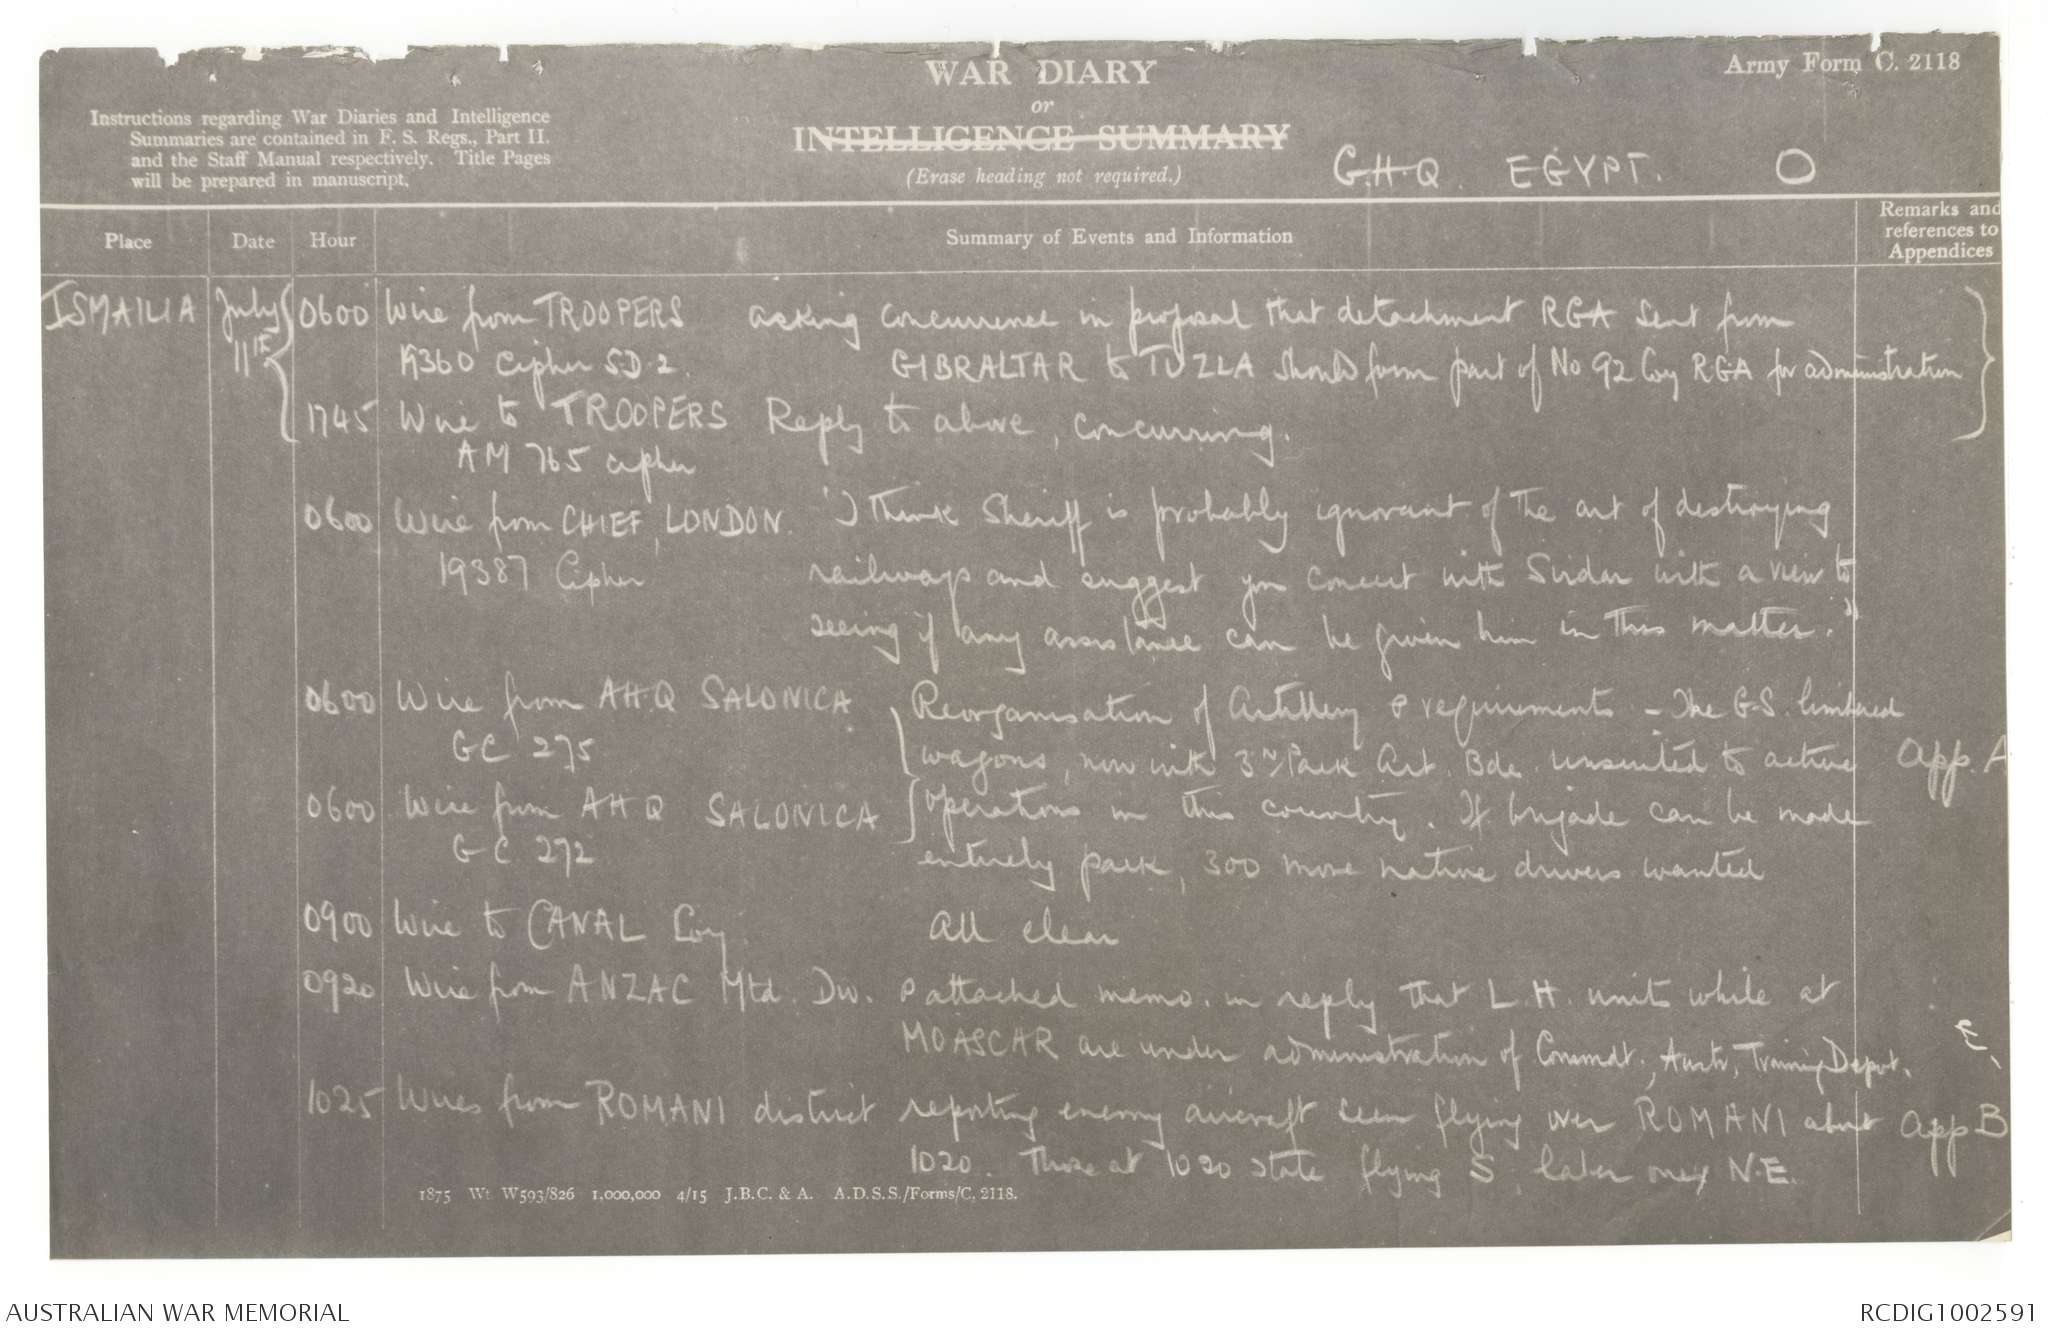 Army Form C. 2118
WAR DIARY
or
INTELLIGENCE SUMMARY
(Erase heading not required.)
Instructions regarding War Diaries and Intelligence
Summaries are contained in F. S. Regs., Part II.
and the Staff Manual respectively. Title Pages
will be prepared in manuscript.
G.H.Q. EGYPT. O
Place Date Hour Summary of Events and Information Remarks and
references to
Appendices
ISMAILIA July 0600 Wire from TROOPERS asking concurrence in proposal that detachment RGA sent from
11th 19360 Cipher SD.2. GIBRALTAR to TUZLA should form part of No 92 Coy RGA for administration
1745 Wire to TROOPERS Reply to above, concurring.
AM 765 cipher
0600 Wire from CHIEF, LONDON. "I think Sheriff is probably ignorant of the art of destroying
19387 Cipher railways and suggest you concert with Sirdar with a view to
seeing if any assistance can be given him in this matter."
0600 Wire from AH.Q SALONICA Reorganisation of Artillery & requirements - The G.S. limbered
GC 275 wagons, now with 3rd Pack Art. Bde. unsuited to active App. A
0600 Wire from AHQ SALONICA operations in this country. If brigade can be made
GC 272 entirely pack, 300 more native drivers wanted
0900 Wire to CANAL Coy. All clear
0920 Wire from ANZAC Mtd. Div. & attached memo. in reply that L.H. units while at
MOASCAR are under administration of Commdt., Austr. Training Depot. E.
1025 Wires from ROMANI district reporting enemy aircraft seen flying over ROMANI about App B
1020. Those at 1020 state flying S, later ones N.E.
1875 Wt. W593/826 1,000,000 4/15 J.B.C. & A. A.D.S.S./Forms/C. 2118.
AUSTRALIAN WAR MEMORIAL
RCDIG1002591